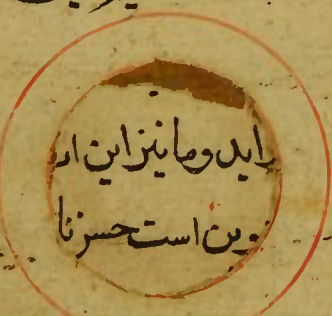 راید و ما نیز این ار
نوین است حسن نا